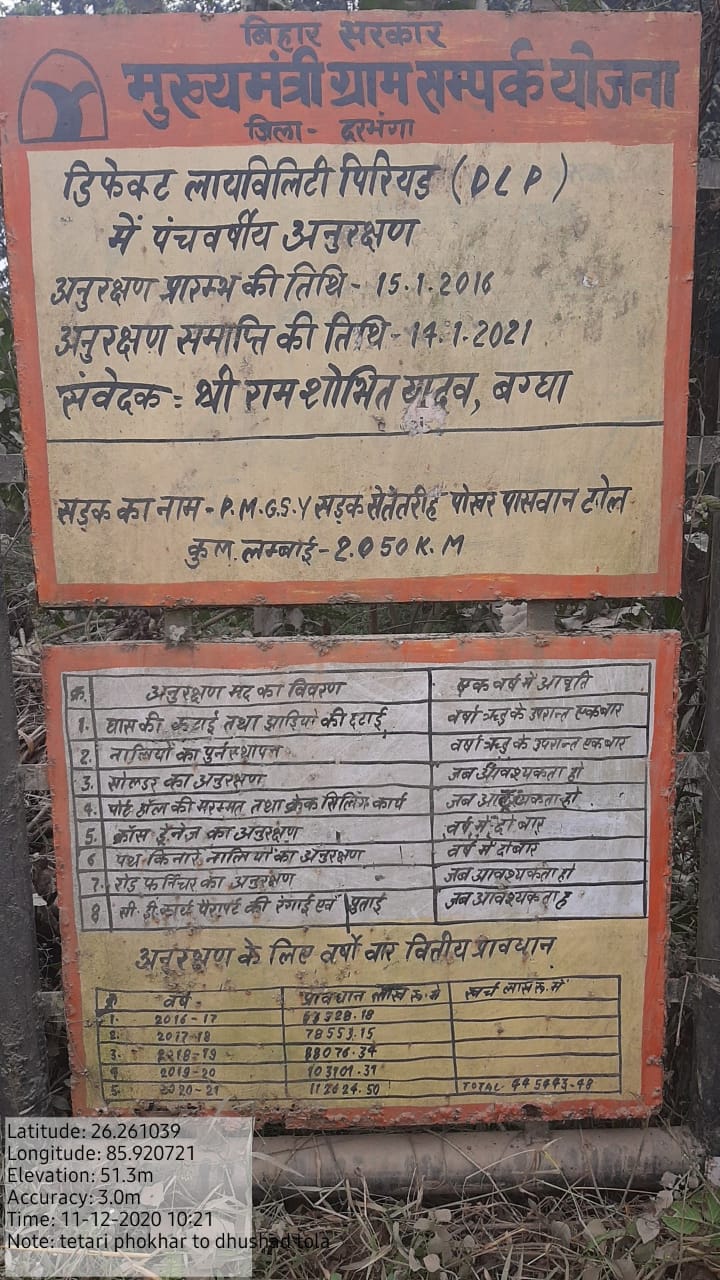 बिहार सरकार
मुख्यमंत्री ग्राम सम्पर्क योजना
जिला- दरभंगा
डिफेक्ट लायविलिटी पिरियड (DLP)
में पंचवर्षीय अनुरक्षण
अनुरक्षण प्रारम्भ की तिथि - 15.1.2016
अनुरक्षण समाप्ति की तिथि - 14.1.2021
संवेदक : श्री राम शोभित यादव, बग्घा
सड़क का नाम - P.M.G.S.Y सड़क से तेतरीह पोखर पासवान टोल
कुल लम्बाई - 2.050 K.M
क्र. अनुरक्षण मद का विवरण एक वर्ष में आवृति
1. घास की कटाई तथा झाड़ियो की हटाई वर्षा ऋतु के उपरान्त एकबार
2. नालियों का पुर्नस्थापन वर्षा ऋतु के उपरान्त एकबार
3. सोल्डर का अनुरक्षण जब आवश्यकता हो
4. पोर्ट हॉल की मरम्मत तथा क्रेक सिलिंग कार्य जब आवश्यकता हो
5. क्रॉस ड्रेनेज का अनुरक्षण वर्ष में दो बार
6 पथ किनारे नालियों का अनुरक्षण वर्ष में दोबार
7. रोड फर्निचर का अनुरक्षण जब आवश्यकता हो
8 सी. डी. कार्य पैरापेट की रंगाई एवं पुताई जब आवश्यकता ह
अनुरक्षण के लिए वर्षो वार वितीय प्रावधान
क्र. वर्ष प्रावधान लाख रू. में खर्च लाख रू. में
1. 2016-17 328.18
2. 2017-18 78553.15
3. 2018-19 88076.34
4. 2019-20 103101.31
5. 2020-21 112624.50 TOTAL 445443-48
Latitude: 26.261039
Longitude: 85.920721
Elevation: 51.3m
Accuracy: 3.0m
Time: 11-12-2020 10:21
Note: tetari phokhar to dhushad tola